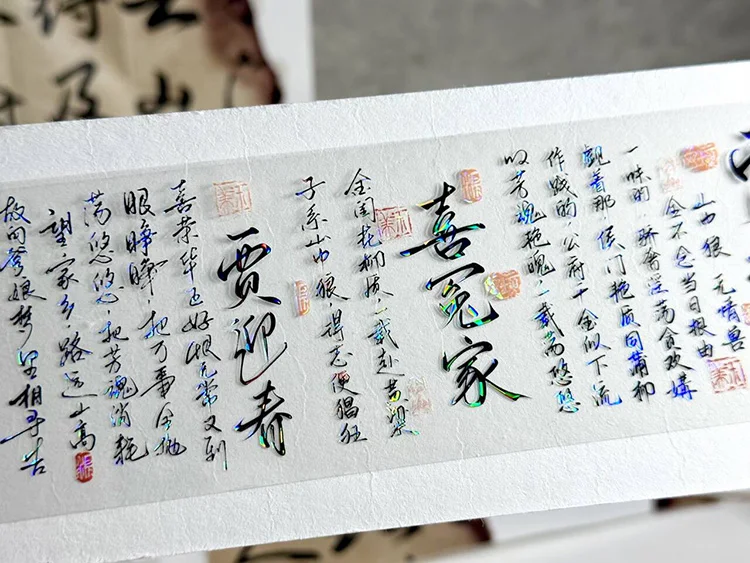 山中狼 无情兽
全不念当日根由
一味的，骄奢淫荡贪欢媾
觑着那，侯门艳质同蒲柳
作践的，公府千金似下流
叹芳魂艳魄，一载荡悠悠
喜冤家
金闺花柳质，一载赴黄粱
子系山中狼，得志便猖狂
贾迎春
喜荣华正好，恨无常又到
眼睁睁，把万事全抛
荡悠悠，把芳魂消耗
望家乡，路远山高
故向爹娘梦里相寻告